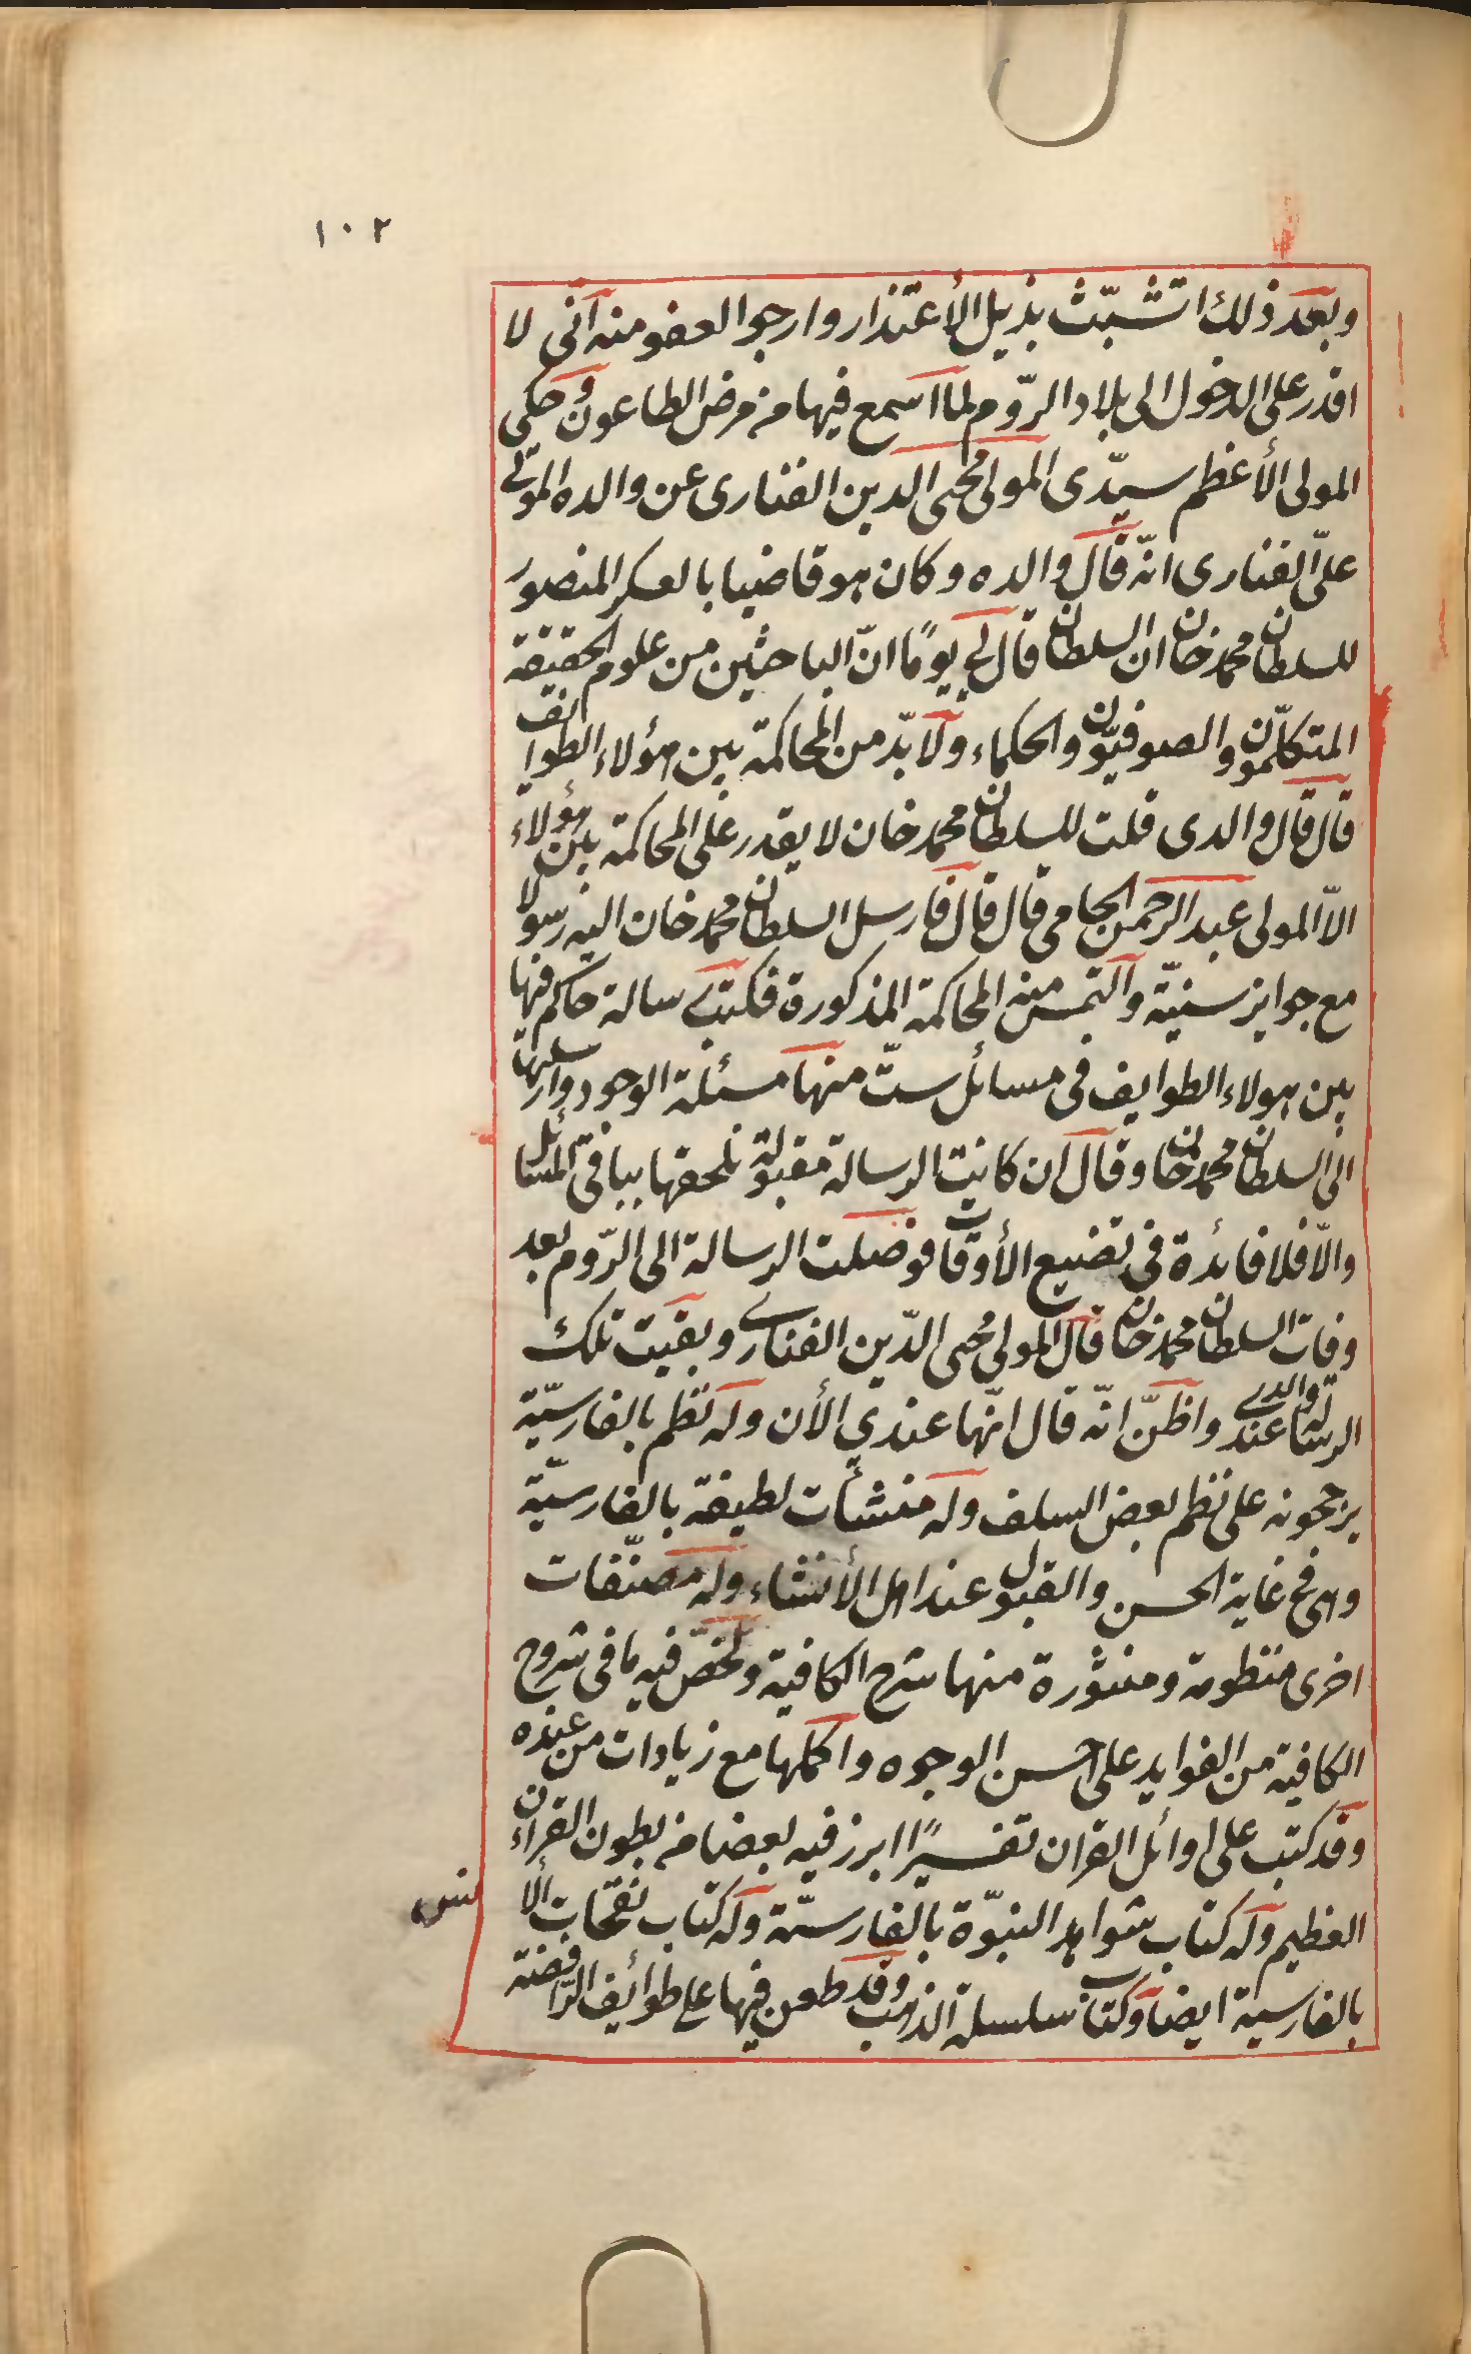 ١٠٢
وبعد ذلك اتشبّث بذيل الأعتذار وارجوا العفو منه انى لا
اقدر على الدخول الى بلاد الرّوم لما اسمع فيها من مرض الطاعون وحكى
المولى الأعظم سيّدى المولى محيى الدين الفنارى عن والده المولى
علىّ الفنارى انّه قال والده وكان هو قاضيا بالعسكر المنصور
للسلطان محمد خان ان السلطان قال لى يومًا انّ الباحثين من علوم الحقيقة
المتكلّمون والصوفيّون والحكماء ولا بدّ من المحاكمة بين هؤلاء الطوائف
قال قال والدى قلت للسلطان محمد خان لا يقدر على المحاكمة بين هؤلاء
الّا المولى عبد الرحمن الجامى قال قال فارسل السلطان محمد خان اليه رسولا
مع جوايز سنيّة والتمس منه المحاكمة المذكورة فكتب رسالة حاكم فيها
بين هولاء الطوايف فى مسائل ستّ منها مسئلة الوجود وارسلها
الى السلطان محمد خان وقال ان كانت الرسالة مقبولة نلحقها بباقى المسائل
والّا فلا فائدة فى تضييع الأوقات فوصلت الرسالة الى الرّوم بعد
وفات السلطان محمد خان قال المولى محيى الدّين الفنارى وبقيت تلك
الرسالة عند والدى واظنّ انّه قال انّها عندي الأن وله نظم بالفارسيّة
يرجحونه على نظم بعض السلف وله منشأت لطيفة بالفارسيّة
وهى فى غاية الحسن والقبول عند اهل الأنشاء وله مصنّفات
اخرى منظومة ومنثورة منها شرح الكافية ولخّص فيه ما فى شروح
الكافية من الفوايد على احسن الوجوه واكملها مع زيادات من عنده
وقد كتب على اوائل القران تفسيرًا ابرز فيه بعضا من بطون القراءن
العظيم وله كتاب شواهد النبوّة بالفارسيّة وله كتاب نفحات الأ
نس
بالفارسية ايضا وكتاب سلسلة الذهب وقد طعن فيها على طوائف الرّافضة